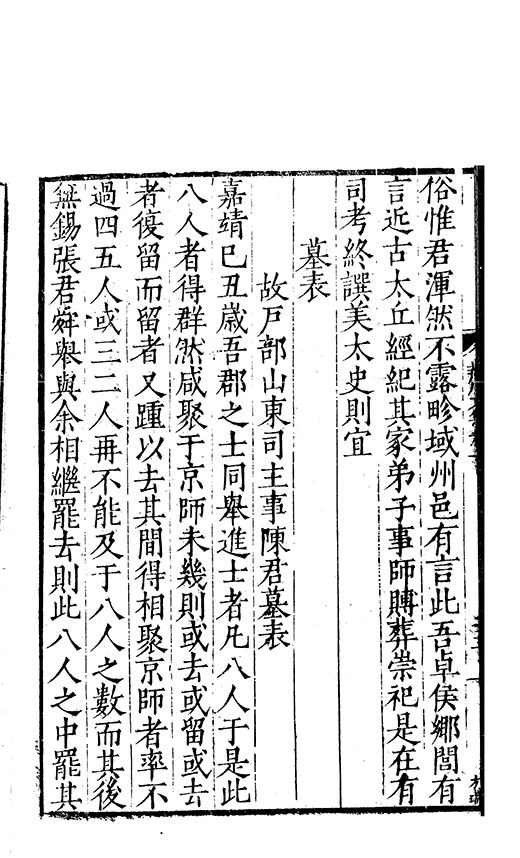 俗惟君渾然不露畛域州邑有言此吾卓侯鄉閭有
言近古太丘經紀其家弟子事師賻葬崇祀是在有
司考終譔美太史則宜
墓表
故戸部山東司主事陳君墓表
嘉靖己丑歲吾郡之士同舉進士者凡八人于是此
八人者得群然咸聚于京師未幾則或去或留或去
者復留而留者又踵以去其間得相聚京師者率不
過四五人或三二人再不能及于八人之數而其後
無錫張君舜舉與余相繼罷去則此八人之中罷其